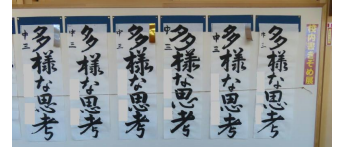 校内書きぞめ展
多様な思考
中三
多様な思考
中三
多様な思考
中三
多様な思考
中三
多様な思考
中三
多様な思考
中三